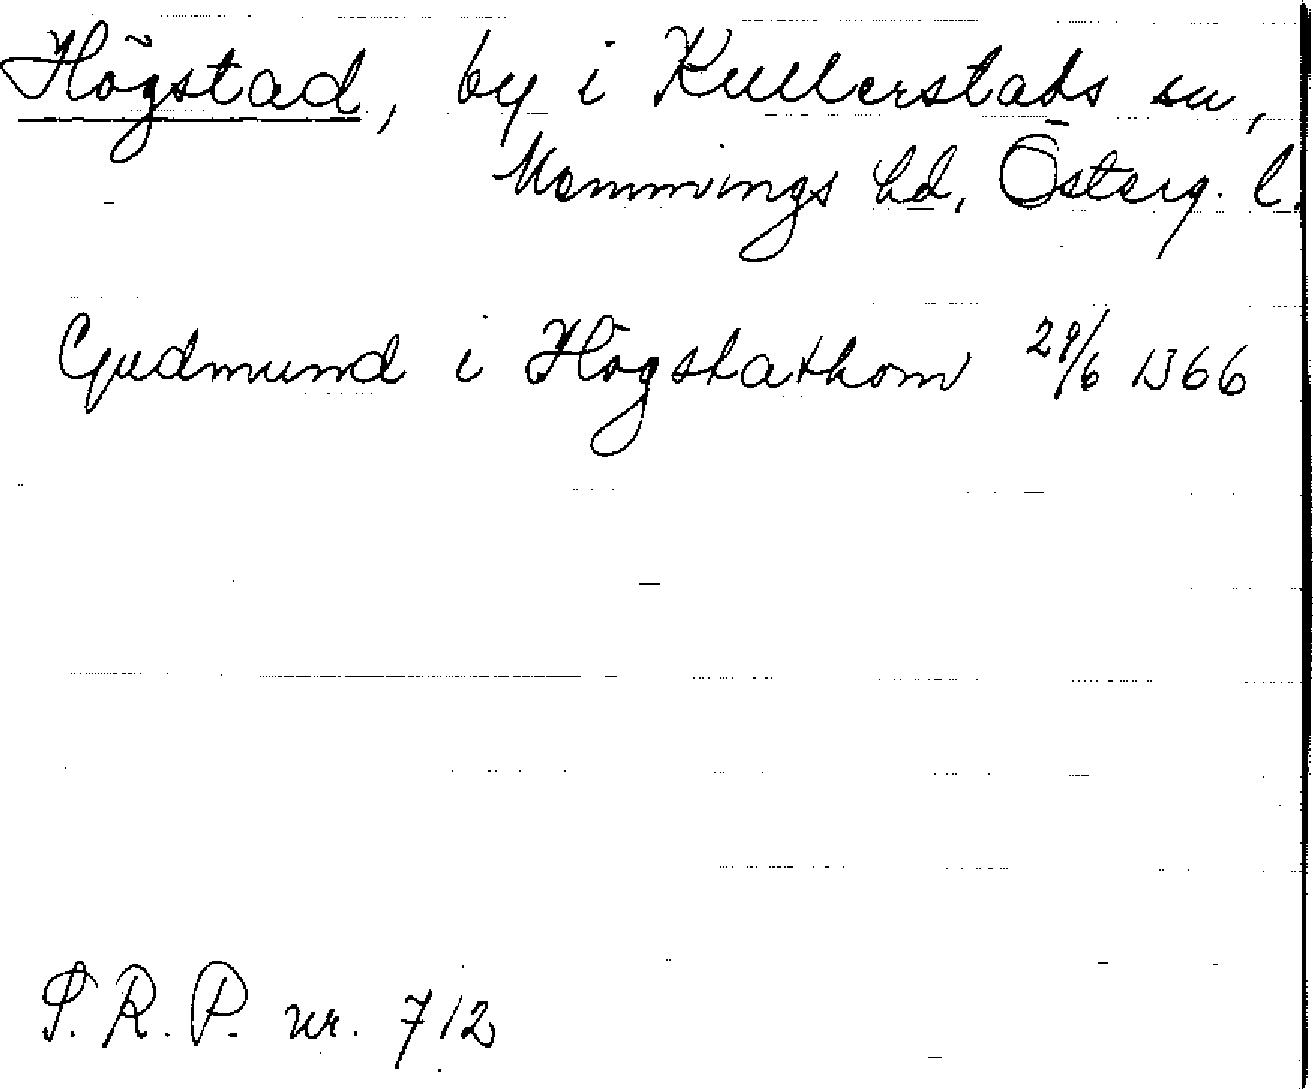 Högstad, by i Kullerstads sn,
Memmings hd, Österg. l.
Gudmund i Högstathom 29/6 1366
S.R.P. nr. 712